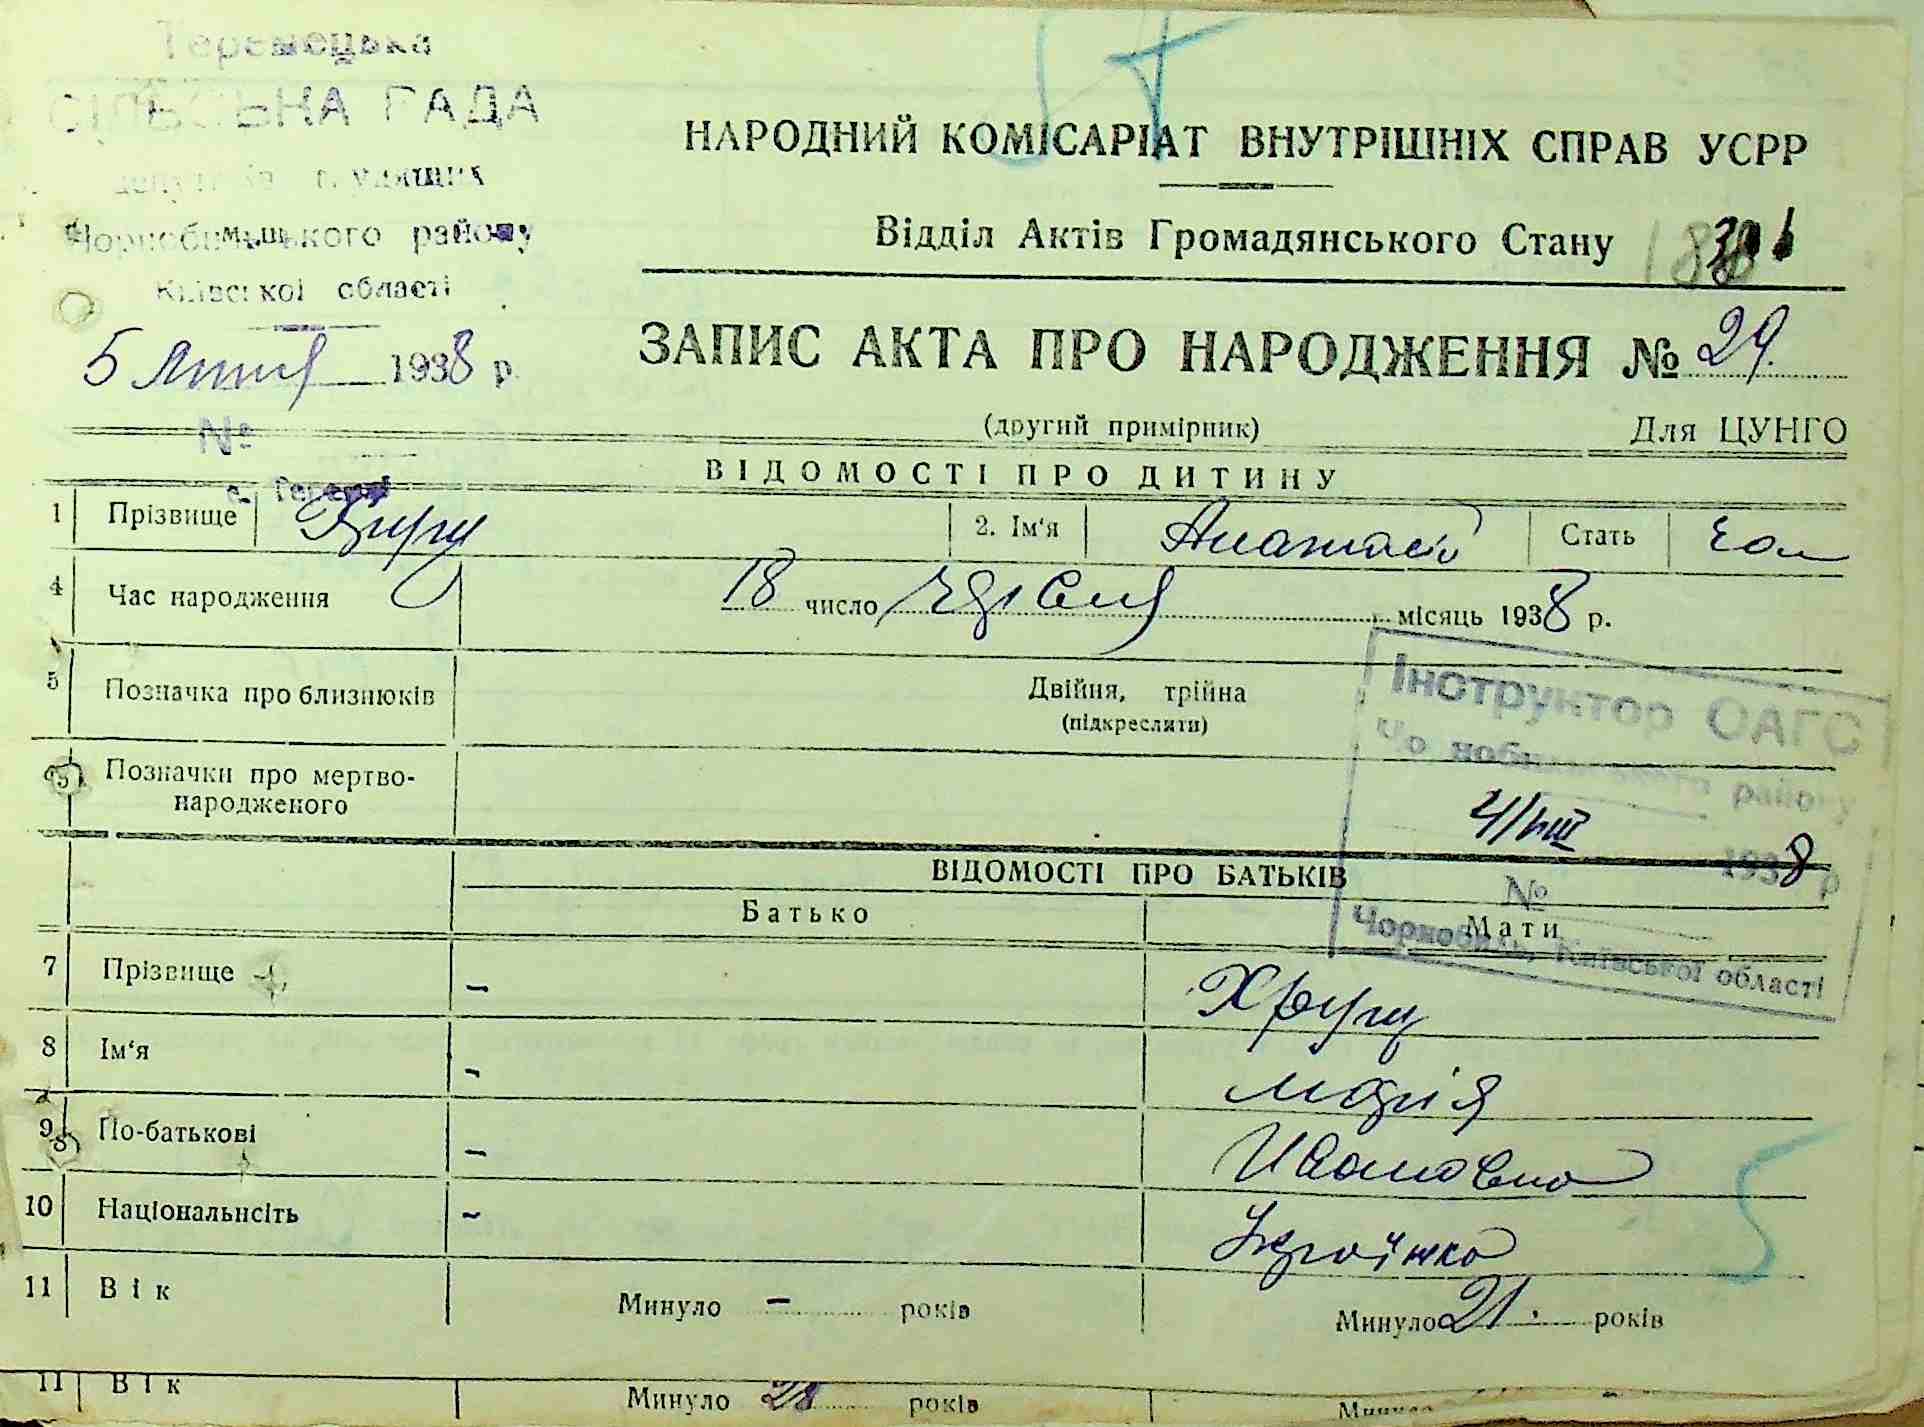 Теремецька
СІЛЬСЬКА РАДА
депутатів трудящих
Чорнобильського району
Київської області
5 липня 1938 р.
№
НАРОДНИЙ КОМІСАРІАТ ВНУТРІШНІХ СПРАВ УСРР
Відділ Актів Громадянського Стану
ЗАПИС АКТА ПРО НАРОДЖЕННЯ № 29.
(другий примірник) Для ЦУНГО
ВІДОМОСТІ ПРО ДИТИНУ
1 Прізвище 2. Ім'я Анатолій Стать чол
4 Час народження 18 число червня місяць 1938 р.
5 Позначка про близнюків Двійня, трійна
(підкреслити)
Позначки про мертво-
народженого
Інструктор ОАГС
Чорнобильського району
4/VIII 1938 р
№
Чорнобиль, Київської області
ВІДОМОСТІ ПРО БАТЬКІВ
Батько Мати
7 Прізвище -
8 Ім'я - Марія
9 По-батькові - Ивановна
10 Національність - Українка
11 Вік Минуло - років Минуло 21. років
11 Вік Минуло 28 років Минуло